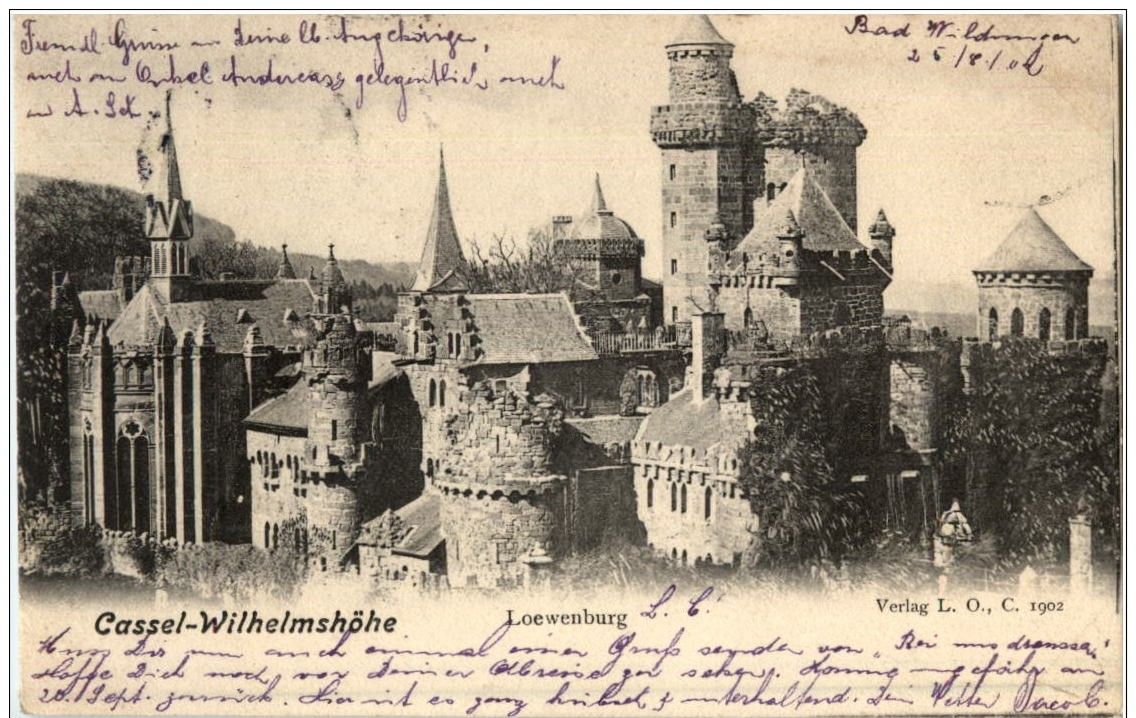 Freundl. Grüsse an Deine lb. Angehörige,
auch an Onkel Andereas gelegentlich, auch
Bad Wildungen
25/8/02
Cassel-Wilhelmshöhe
Loewenburg
L. C!
Verlag L. O., C. 1902
Muss Dir nun auch einmal einen Gruß senden von „Bei uns draussa“
Hoffe Dich noch vor Deiner Abreise zu sehen. Komme ungefähr am
20. Sept. zurück. Hier ist es ganz hübsch & unterhaltend. Dein Vetter C.